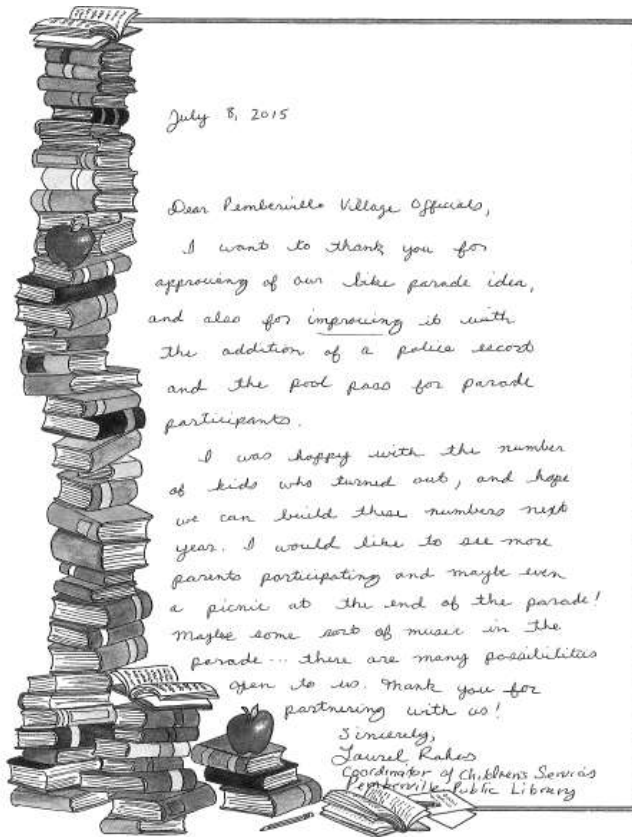 July 8, 2015
Dear Pemberville Village Officials,
I want to thank you for
approving of our bike parade idea,
and also for improving it with
the addition of a police escort
and the pool pass for parade
participants.
I was happy with the number
of kids who turned out, and hope
we can build these numbers next
year. I would like to see more
parents participating and maybe even
a picnic at the end of the parade!
Maybe some sort of music in the
parade... there are many possibilities
open to us. Thank you for
partnering with us!
Sincerely,
Laurel Rakas
Coordinator of Children's Services
Pemberville Public Library